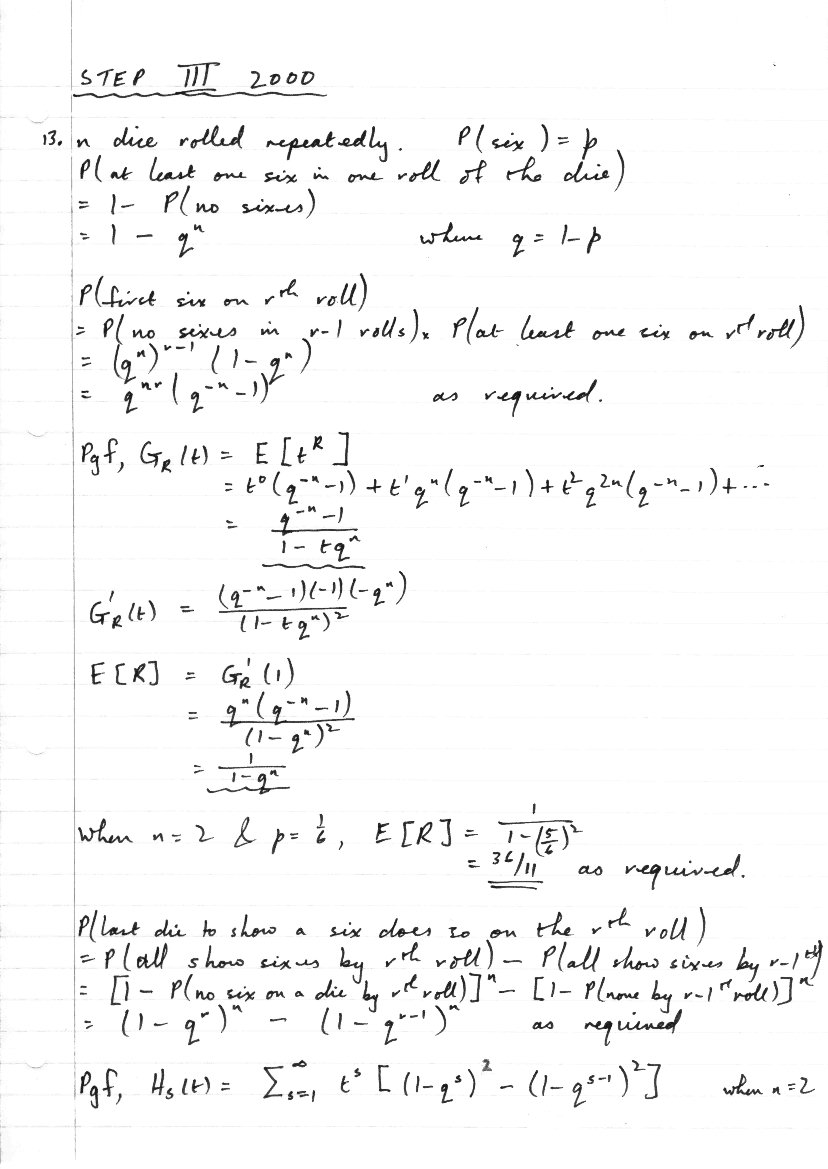 STEP III 2000
13. n dice rolled repeatedly. P(six) = p
P(at least one six in one roll of the dice)
= 1 - P(no sixes)
= 1 - qⁿ where q = 1-p
P(first six on rᵗʰ roll)
= P(no sixes in r-1 rolls) × P(at least one six on rᵗʰ roll)
= (qⁿ)ʳ⁻¹ (1-qⁿ)
= qⁿʳ(q⁻ⁿ-1) as required.
Pgf, G_R(t) = E[t^R]
= t⁰(q⁻ⁿ-1) + t¹qⁿ(q⁻ⁿ-1) + t²q²ⁿ(q⁻ⁿ-1) + ...
= (q⁻ⁿ-1)/(1-tqⁿ)
G'_R(t) = (q⁻ⁿ-1)(-1)(-qⁿ)/(1-tqⁿ)²
E[R] = G'_R(1)
= qⁿ(q⁻ⁿ-1)/(1-qⁿ)²
= 1/(1-qⁿ)
When n=2 & p=1/6, E[R] = 1/(1-(5/6)²)
= 36/11 as required.
P(last die to show a six does so on the rᵗʰ roll)
= P(all show sixes by rᵗʰ roll) - P(all show sixes by r-1ᵗʰ)
= [1 - P(no six on a die by rᵗʰ roll)]ⁿ - [1 - P(none by r-1ᵗʰ roll)]ⁿ
= (1-qʳ)ⁿ - (1-qʳ⁻¹)ⁿ as required
Pgf, H_S(t) = Σ_{s=1}^∞ tˢ[(1-qˢ)² - (1-qˢ⁻¹)²] when n=2